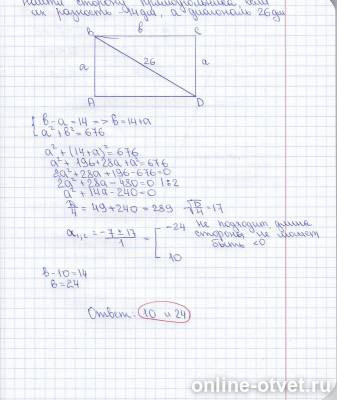 найти стороны прямоугольника если
их разность 14 дм, а диагональ 26 дм
B в C
a 26 a
A D
{ в-а=14 => в=14+а
а²+в²=676
а²+(14+а)²=676
а²+196+28а+а²=676
2а²+28а+196-676=0
2а²+28а-480=0 |:2
а²+14а-240=0
D/4=49+240=289 √D/4=17
а₁,₂ = -7±17/1 = [ -24 не подходит длина
стороны не может
быть <0
10
в-10=14
в=24
Ответ: 10 и 24
online-otvet.ru